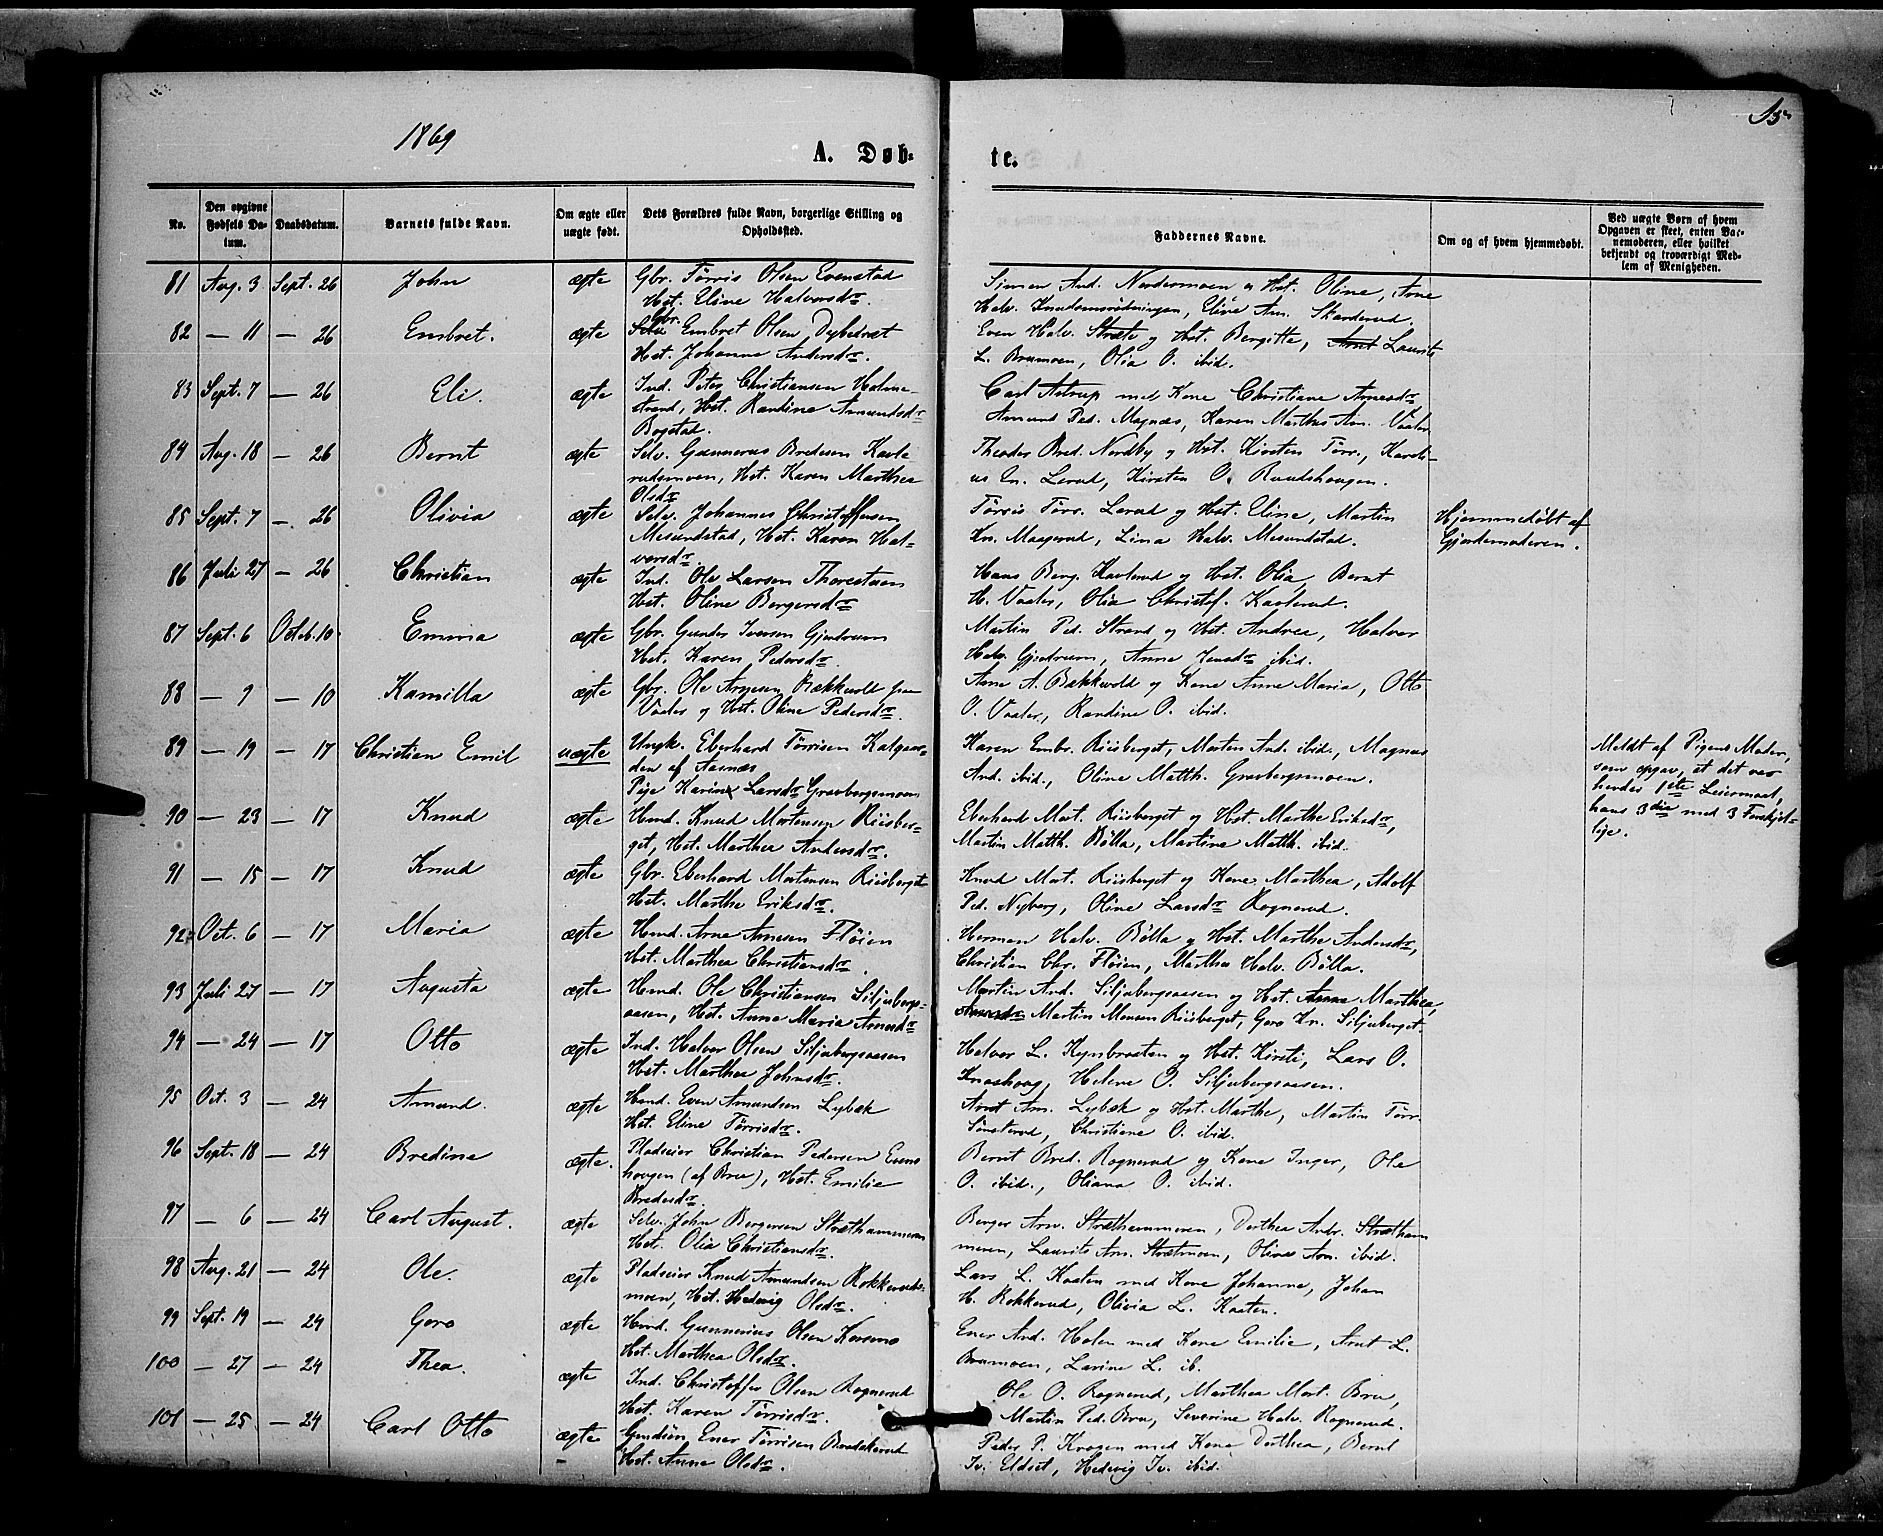 1869
13
A. Døb- te.
No. | Den opgivne Fødsels Datum. | Daabsdatum. | Barnets fulde Navn. | Om ægte eller uægte født. | Dets Forældres fulde Navn, borgerlige Stilling og Opholdssted. | Faddernes Navne. | Om og af hvem hjemmedøbt. | Ved uægte Børn af hvem Opgaven er skeet, enten Barnemoderen, eller hvilket bekjendt og troværdigt Medlem af Menigheden.
81 Aug. 3 Sept. 26 John ægte Gbr. Tørris Olsen Evenstad
Hst. Eline Halvorsdr.
Simen And. Nordermoen og Hst. Oline, Arne
Halv. Eline Am. Skarderud.
82 — 11 — 26 Embret. ægte Gbr. Embret Olsen Dybedræt
Hst. Johanne Andersdr.
Even Halv. Stræte og Hst. Bergitte, Laurits
L. Bramoen, Olia O. ibid.
83 Sept. 7 — 26 Eli. ægte Ind. Peter Christiansen Holme-
strand, Hst. Randine Amundsdr
Bogstad.
Carl Astrup med Kone Christiane Arnesdr
Amund Ped. Magnæs, Karen Marthea Am. Vaaler
84 Aug. 18 — 26 Bernt ægte Selv. Gunnerus Bredesen Kavle-
rudsmoen, Hst. Karen Marthea
Olsdr
Theodor Bred. Nordby og Hst. Kirsten Tørr., Kareli-
us En. Lerud, Kirsten O. Ruudshaugen.
85 Sept. 7 — 26 Olivia ægte Selv. Johannes Christoffersen
Mesundstad, Hst. Karen Hal-
vorsdr.
Tørris Tørr. Lerud og Hst. Eline, Martin
Kr. Maagerud, Lina Halv. Mesundstad.
Hjemmedøbt af
Gjordemoderen.
86 Juli 27 — 26 Christian ægte Ind. Ole Larsen Thorestuen
Hst. Oline Bergersdr
Hans Berg. Kavlerud og Hst. Olia, Bernt
H. Vaaler, Olia Christof. Kavlerud.
87 Sept. 6 Octob. 10 Emma ægte Gbr. Gunder Iversen Gjedrum
Hst. Karen Pedersdr.
Martin Ped. Strand og Hst. Andrea, Halvor
Halv. Gjedrum, Anne Jensdr ibid.
88 — 9 — 10 Kamilla ægte Gbr. Ole Arnesen Bækkevold fra
Vaaler og Hst. Oline Pedersdr.
Arne A. Bækkevold og Kone Anne Maria, Otto
O. Vaaler, Randine O. ibid.
89 — 19 — 17 Christian Emil uægte Ungk. Eberhard Tørrisen Kalgaar-
den af Aasnæs
Pige Karine Larsdr Gravbergsmoen
Karen Embr. Riisberget, Morten And. ibid., Magnus
And. ibid., Oline Matth. Gravbergsmoen.
Meldt af Pigens Moder,
som opgav, at det var
hendes 1ste Leiermaal,
hans 3die med 3 Forskjel-
lige.
90 — 23 — 17 Knud ægte Hmd. Knud Mortensen Riisber-
get, Hst. Marthea Andersdr.
Eberhard Mort. Riisberget og Hst. Marthe Eriksdr,
Martin Matth. Bølla, Martine Matth. ibid.
91 — 15 — 17 Knud ægte Gbr. Eberhard Mortensen Riisberget
Hst. Marthe Eriksdr.
Knud Mort. Riisberget og Kone Marthea, Adolf
Ped. Nyberg, Oline Larsdr Rognerud.
92 Oct. 6 — 17 Maria ægte Hmd. Arne Arnesen Fløien
Hst. Marthea Christiansdr.
Herman Halv. Bølla og Hst. Marthe Andersdr,
Christian Chr. Fløien, Marthea Halv. Bølla.
93 Juli 27 — 17 Augusta ægte Hmd. Ole Christiansen Siljubergs-
aasen, Hst. Anne Maria Amundsdr
Martin And. Siljubergsaasen og Hst. Anne Marthea,
Martin Monsen Riisberget, Goro Kr. Siljuberget.
94 — 24 — 17 Otto ægte Ind. Halvor Olsen Siljubergsaasen
Hst. Marthea Johnsdr.
Halvor L. Kynbraaten og Hst. Kirsti, Lars O.
Knashaug, Helene O. Siljubergsaasen.
95 Oct. 3 — 24 Amund. ægte Hmd. Even Amundsen Lybæk
Hst. Eline Tørrisdr.
Arnt Am. Lybæk og Hst. Marthe, Martin Tørr.
Sønsterud, Christiane O. ibid.
96 Sept. 18 — 24 Bredine ægte. Pladseier Christian Pedersen Evens-
haugen (af Brea), Hst. Emilie
Bredesdr.
Bernt Bred. Rognerud og Kone Inger, Ole
O. ibid., Oliana O. ibid.
97 — 6 — 24 Carl August. ægte Selv. John Bergersen Stræthammeren
Hst. Olia Christiansdr.
Berger Arn. Stræthammeren, Dorthea Andr. Strætham-
meren, Laurits Am. Strætmoen, Oline Am. ibid.
98 Aug. 21 — 24 Ole. ægte Pladseier Knud Amundsen Rokkeruds-
moen, Hst. Hedevig Olsdr.
Lars L. Kaaten med Kone Johanne, Johan
H. Rokkerud, Olivia L. Kaaten.
99 Sept. 19 — 24 Goro ægte Hmd. Gunnerius Olsen Korsmo
Hst. Marthea Olsdr.
Ener And. Holen med Kone Emilie, Arnt L.
Bramoen, Larine L. ib.
100 — 27 — 24 Thea. ægte Ind. Christoffer Olsen Rognerud
Hst. Karen Tørrisdr.
Ole O. Rognerud, Marthea Mort. Bru,
Martin Ped. Bru, Severine Halv. Rognerud.
101 — 25 — 24 Carl Otto ægte Ener Tørrisen Bredekerud
Hst. Anne Olsdr.
Peder P. Kragen med Kone Dorthea, Bernt
Iv. Eldset, Hedevig Iv. ibid.